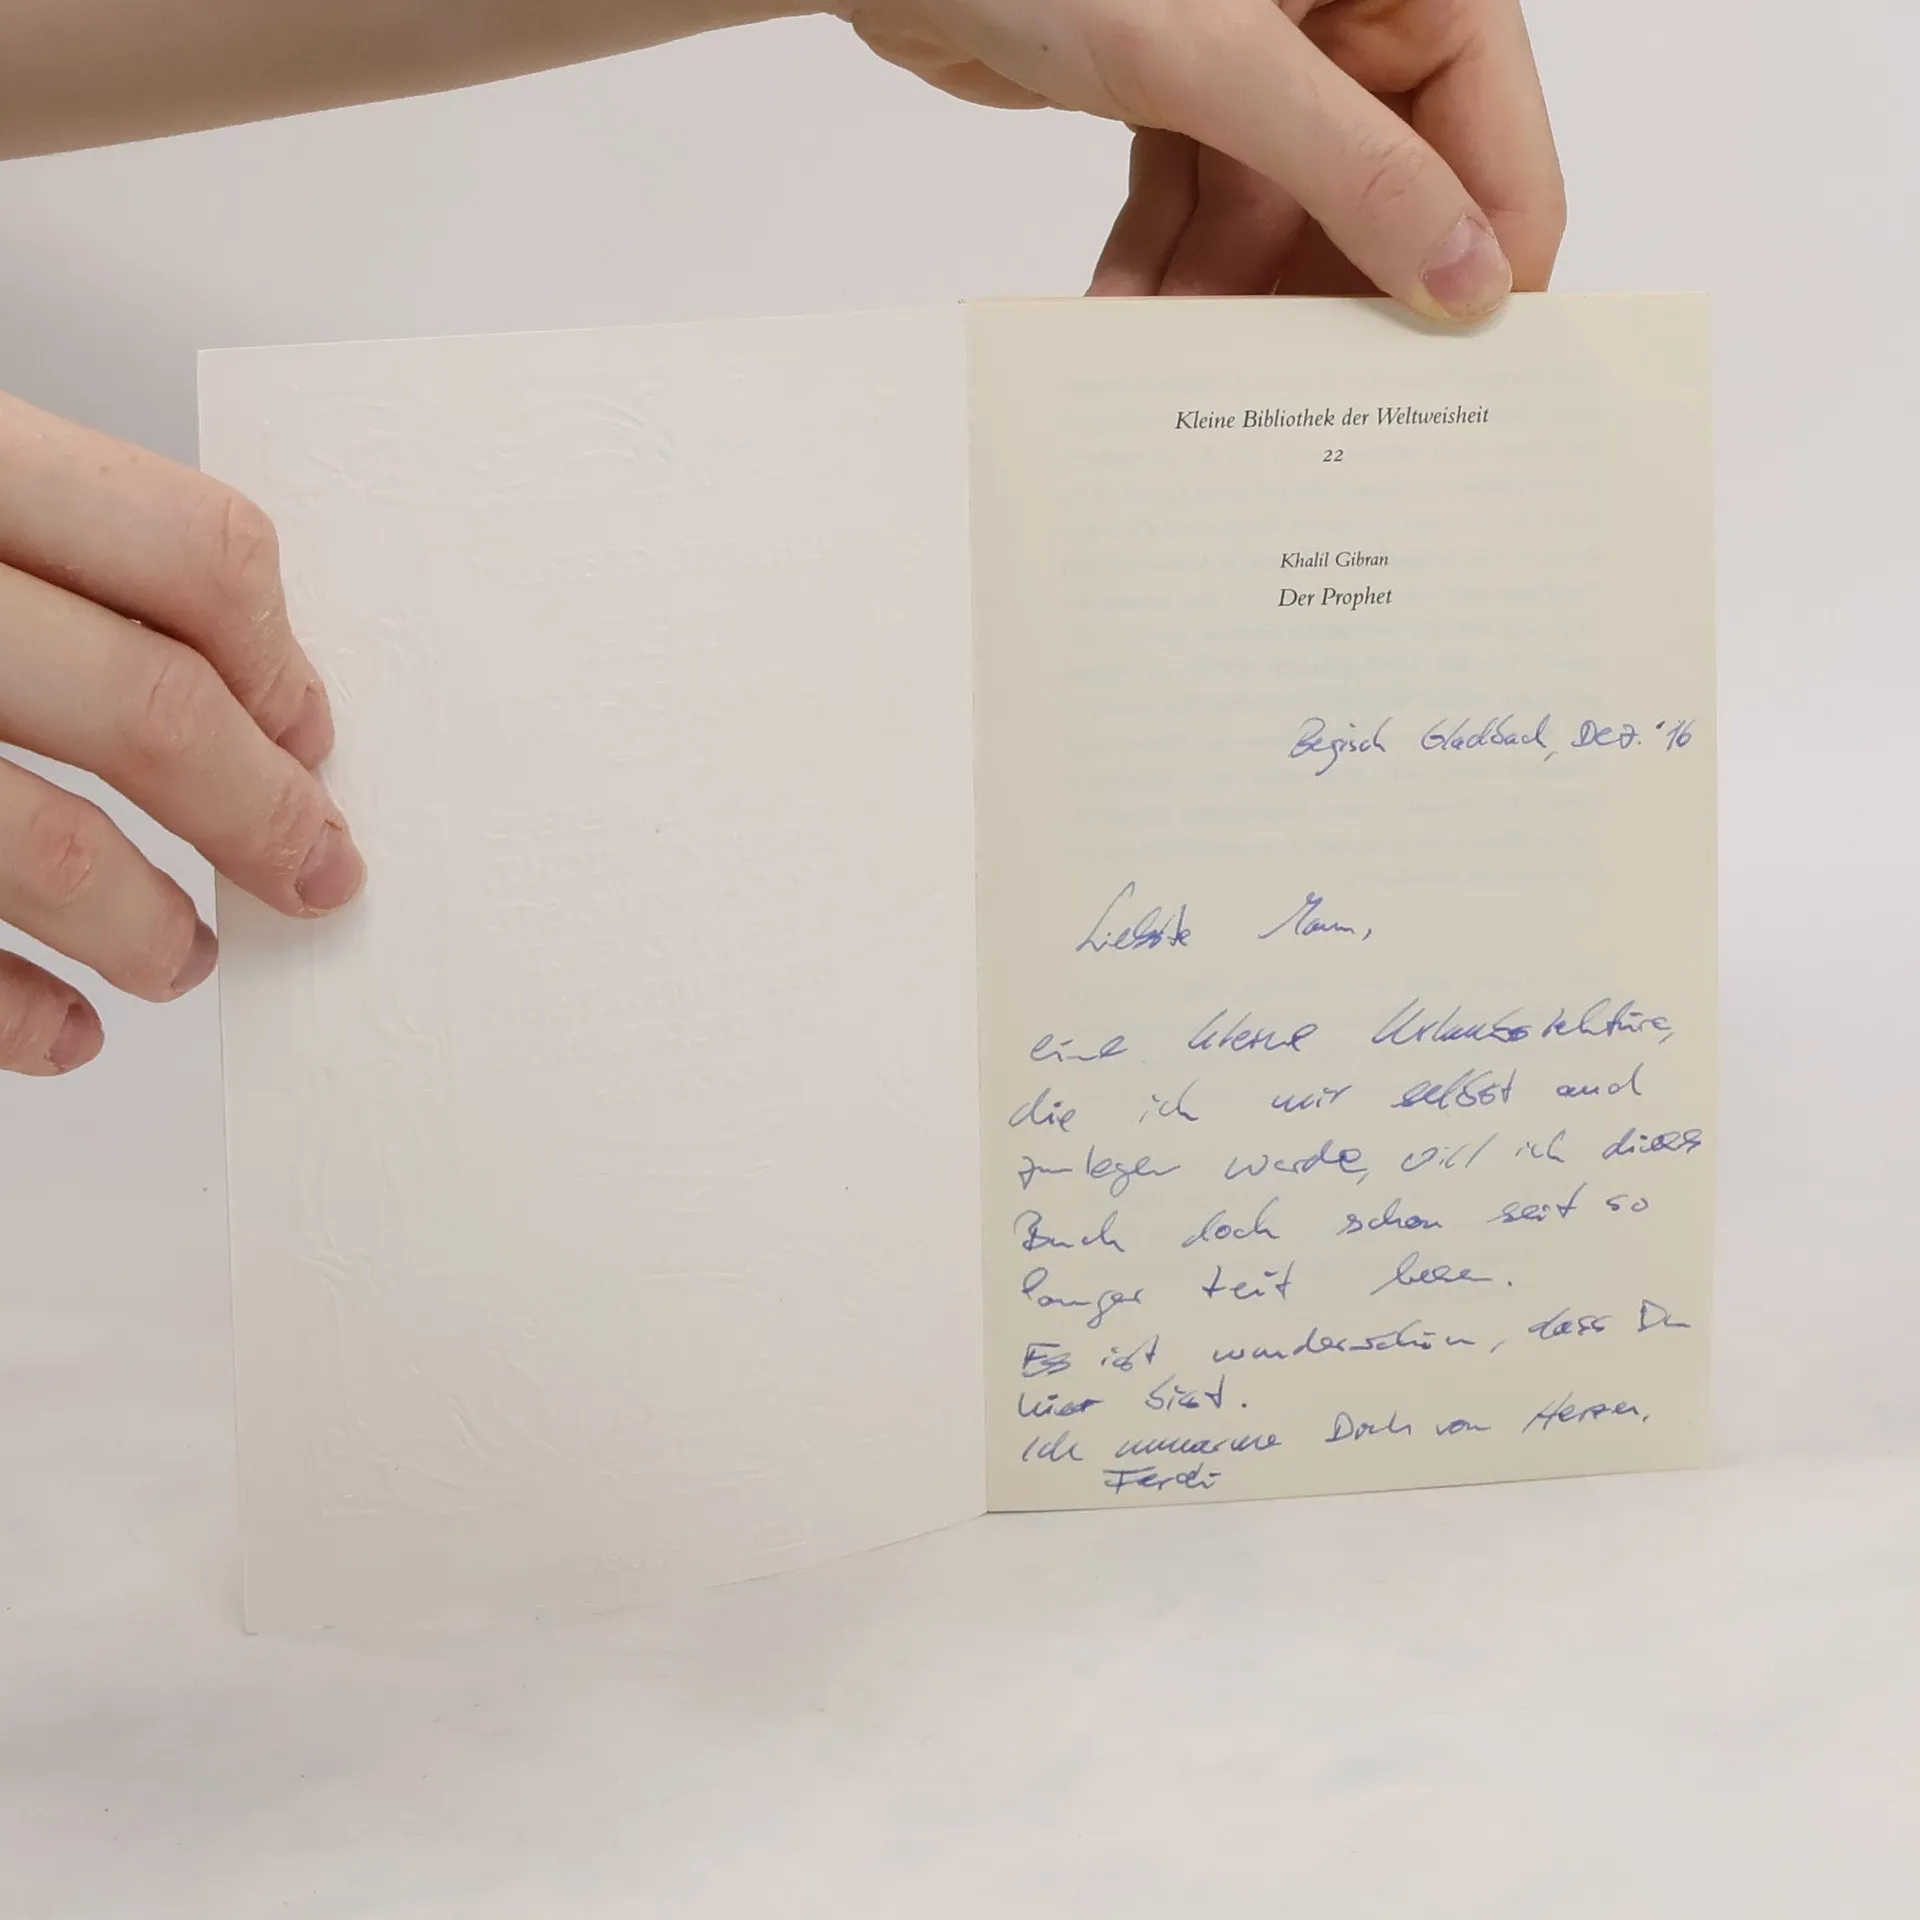 Kleine Bibliothek der Weltweisheit
22
Khalil Gibran
Der Prophet
Begisch Gladbach, Dez. '16
Liebste
eine kleine Urlaubslektüre,
die ich mir selbst auch
zulegen werde, will ich dieses
Buch doch schon seit so
langer Zeit lesen.
Es ist wunderschön, dass Du
hier bist.
Ich umarme Dich von Herzen,
Ferdi